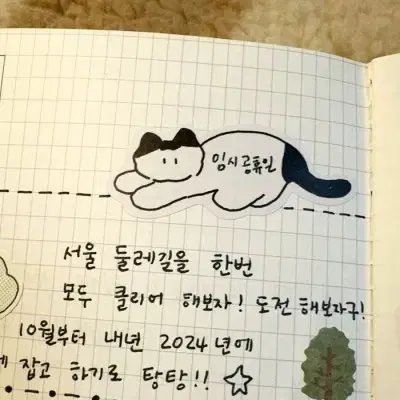 임시공휴일
서울 둘레길을 한번
모두 클리어 해보자! 도전 해보자구!
10월부터 내년 2024년에
잡고 하기로 탕탕!!